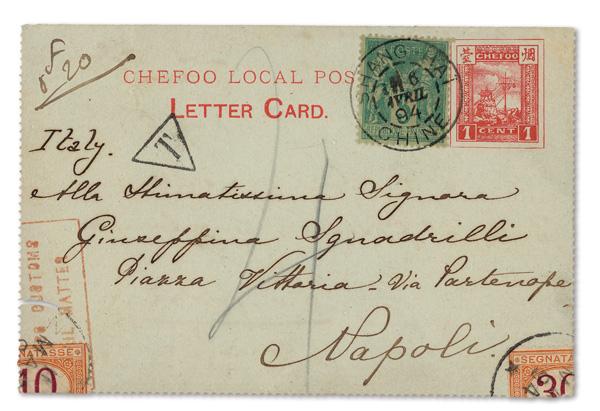 0 F 20
CHEFOO LOCAL POS
LETTER CARD.
SHANG-HAI
6
AVRIL
94
CHINE
CHEFOO
烟
1 CENT 1
T
Italy.
Alla Stimatissima Signora
Giuseppina Sgnadrilli
Piazza Vittoria - Via Partenope
Napoli.
CUSTOMS
MATTER
SEGNATASSE
10
SEGNATA
30